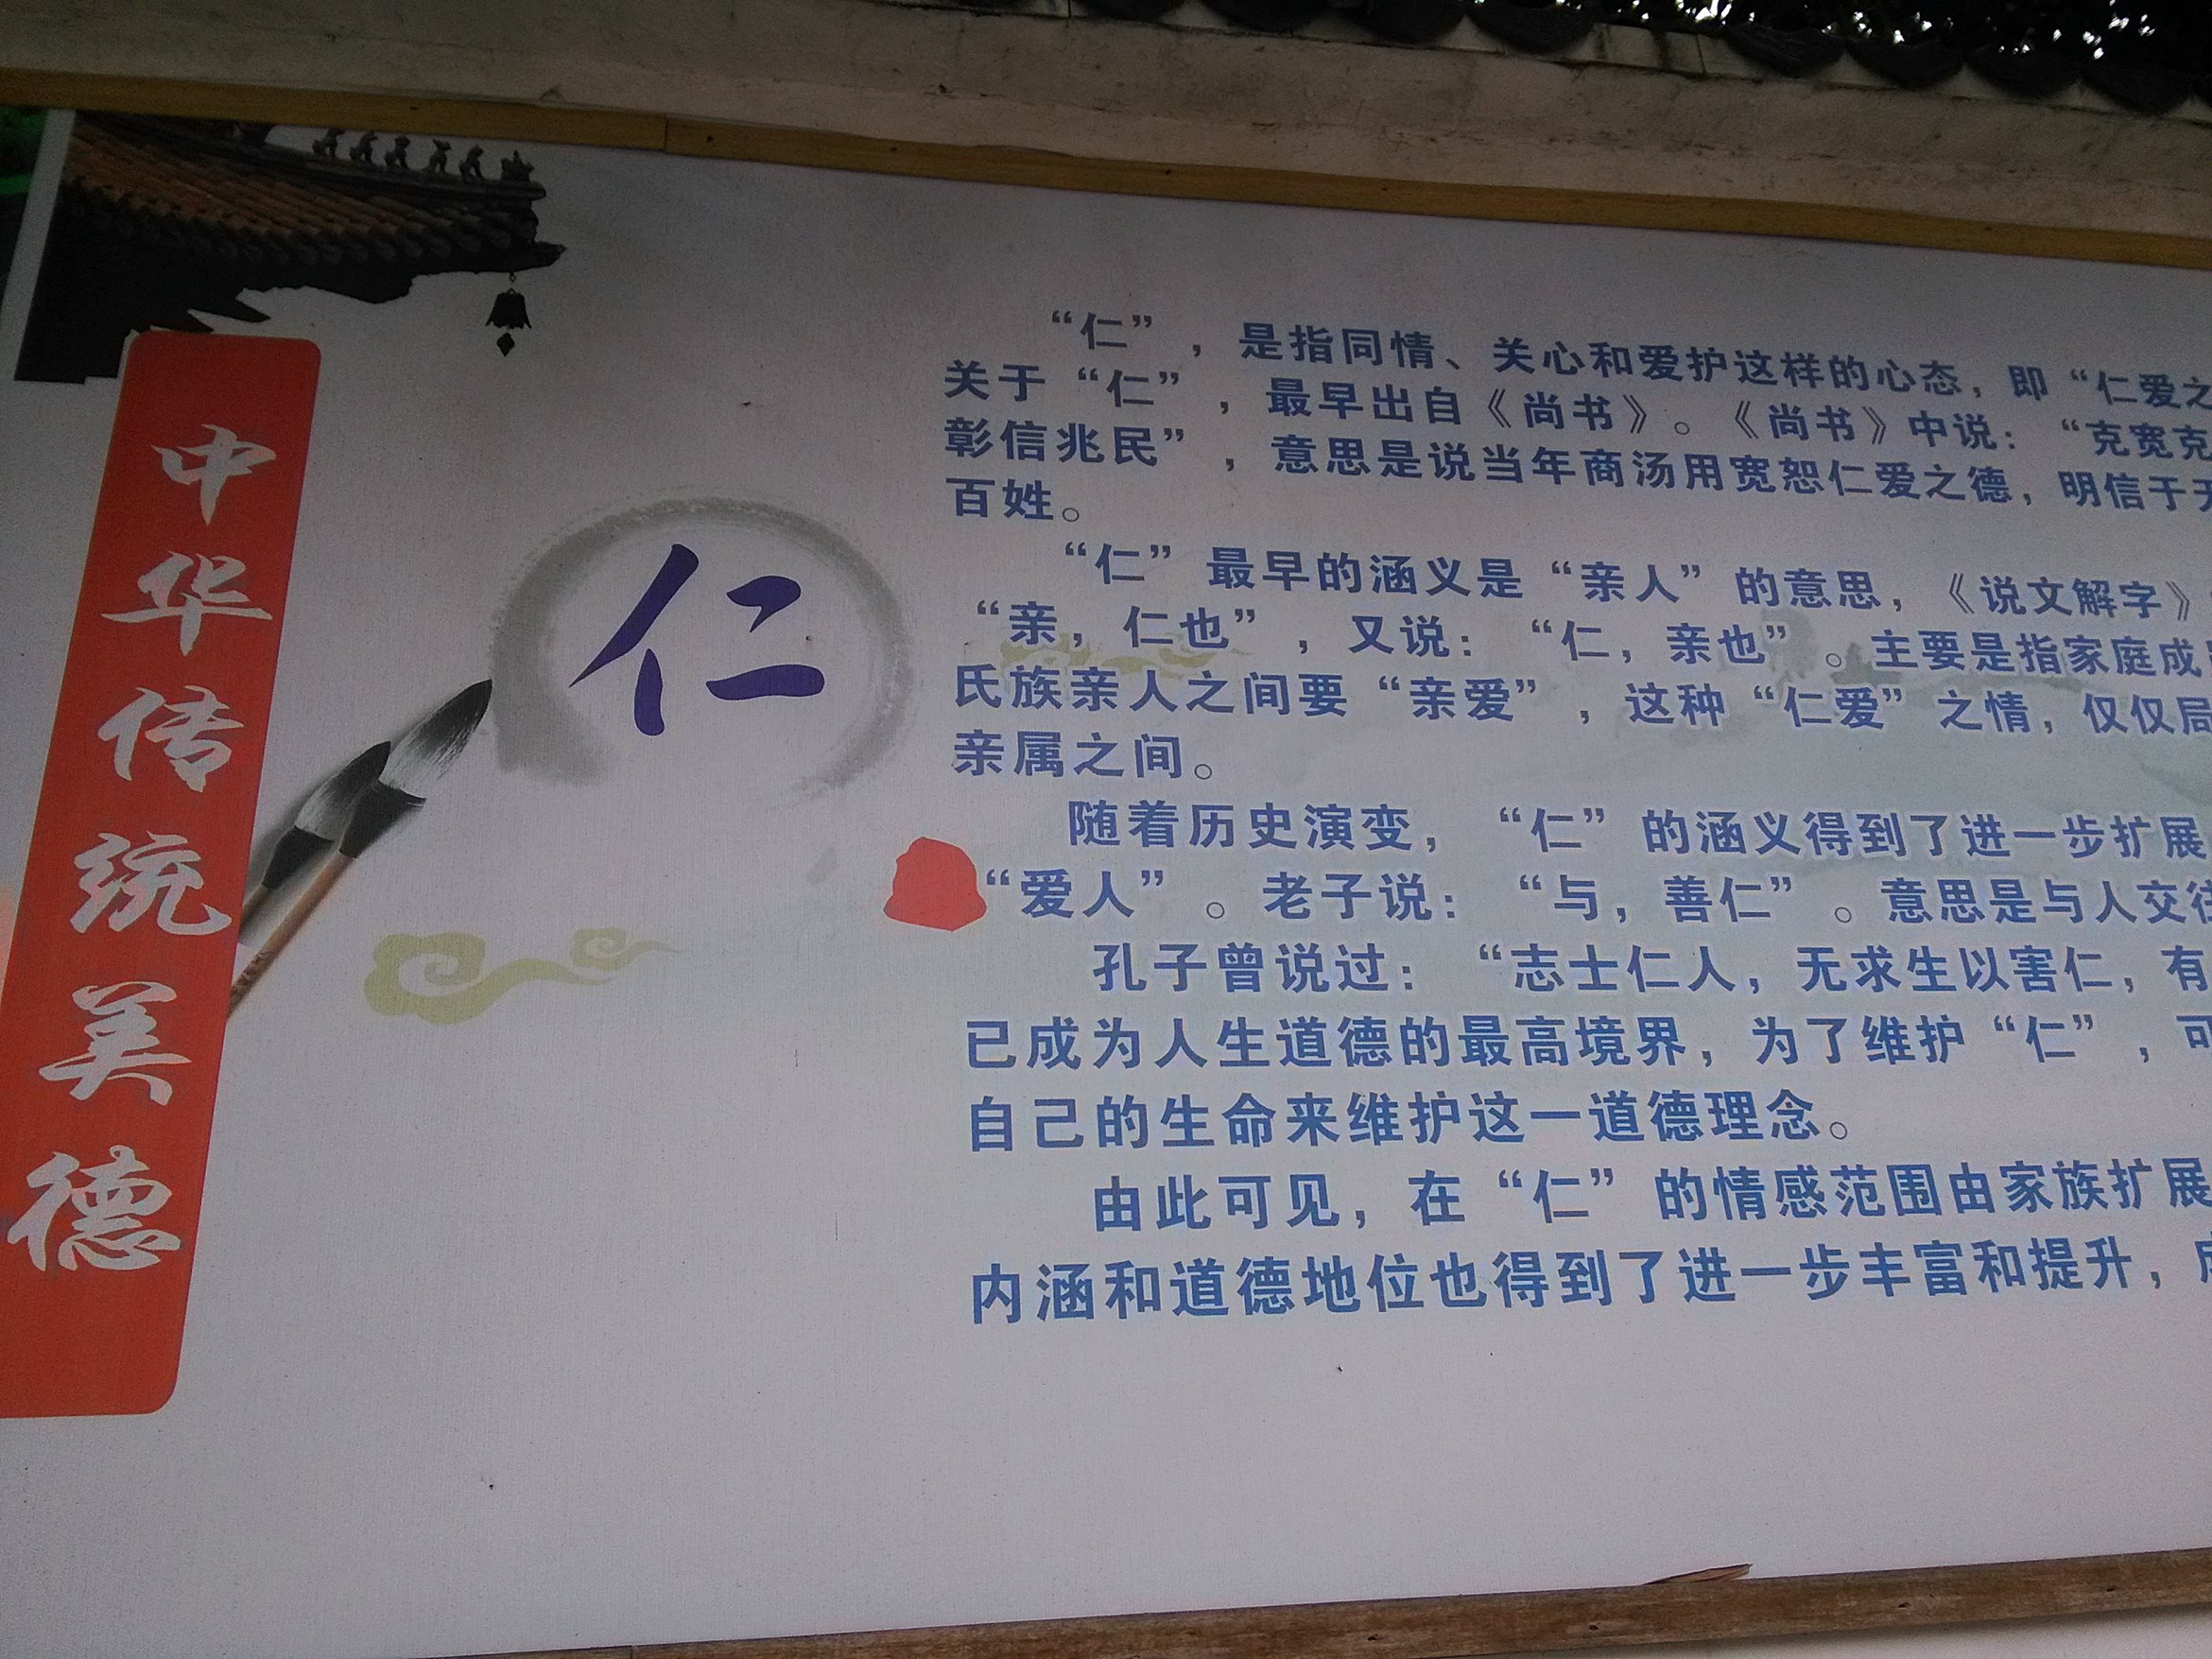 中华传统美德
仁
“仁”，是指同情、关心和爱护这样的心态，即“仁爱之
关于“仁”，最早出自《尚书》。《尚书》中说：“克宽克
彰信兆民”，意思是说当年商汤用宽恕仁爱之德，明信于天
百姓。
“仁”最早的涵义是“亲人”的意思，《说文解字》
“亲，仁也”，又说：“仁，亲也”。主要是指家庭成员
氏族亲人之间要“亲爱”，这种“仁爱”之情，仅仅局
亲属之间。
随着历史演变，“仁”的涵义得到了进一步扩展
“爱人”。老子说：“与，善仁”。意思是与人交往
孔子曾说过：“志士仁人，无求生以害仁，有
已成为人生道德的最高境界，为了维护“仁”，可
自己的生命来维护这一道德理念。
由此可见，在“仁”的情感范围由家族扩展
内涵和道德地位也得到了进一步丰富和提升，